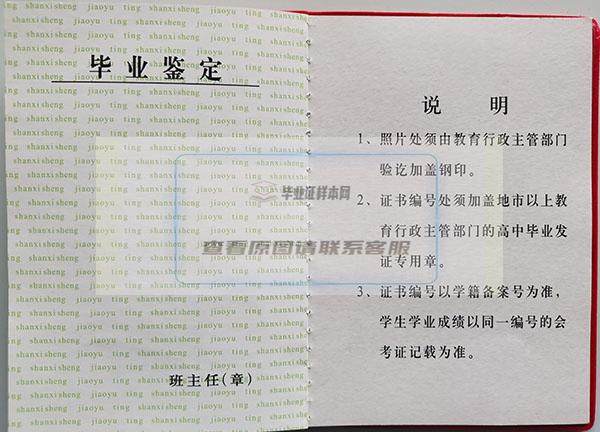 毕业鉴定
班主任(章)
说 明
1、照片处须由教育行政主管部门
验讫加盖钢印。
2、证书编号处须加盖地市以上教
育行政主管部门的高中毕业发
证专用章。
3、证书编号以学籍备案号为准,
学生学业成绩以同一编号的会
考证记载为准。
毕业证样本网
查看原图请联系客服
shanxisheng jiaoyu ting